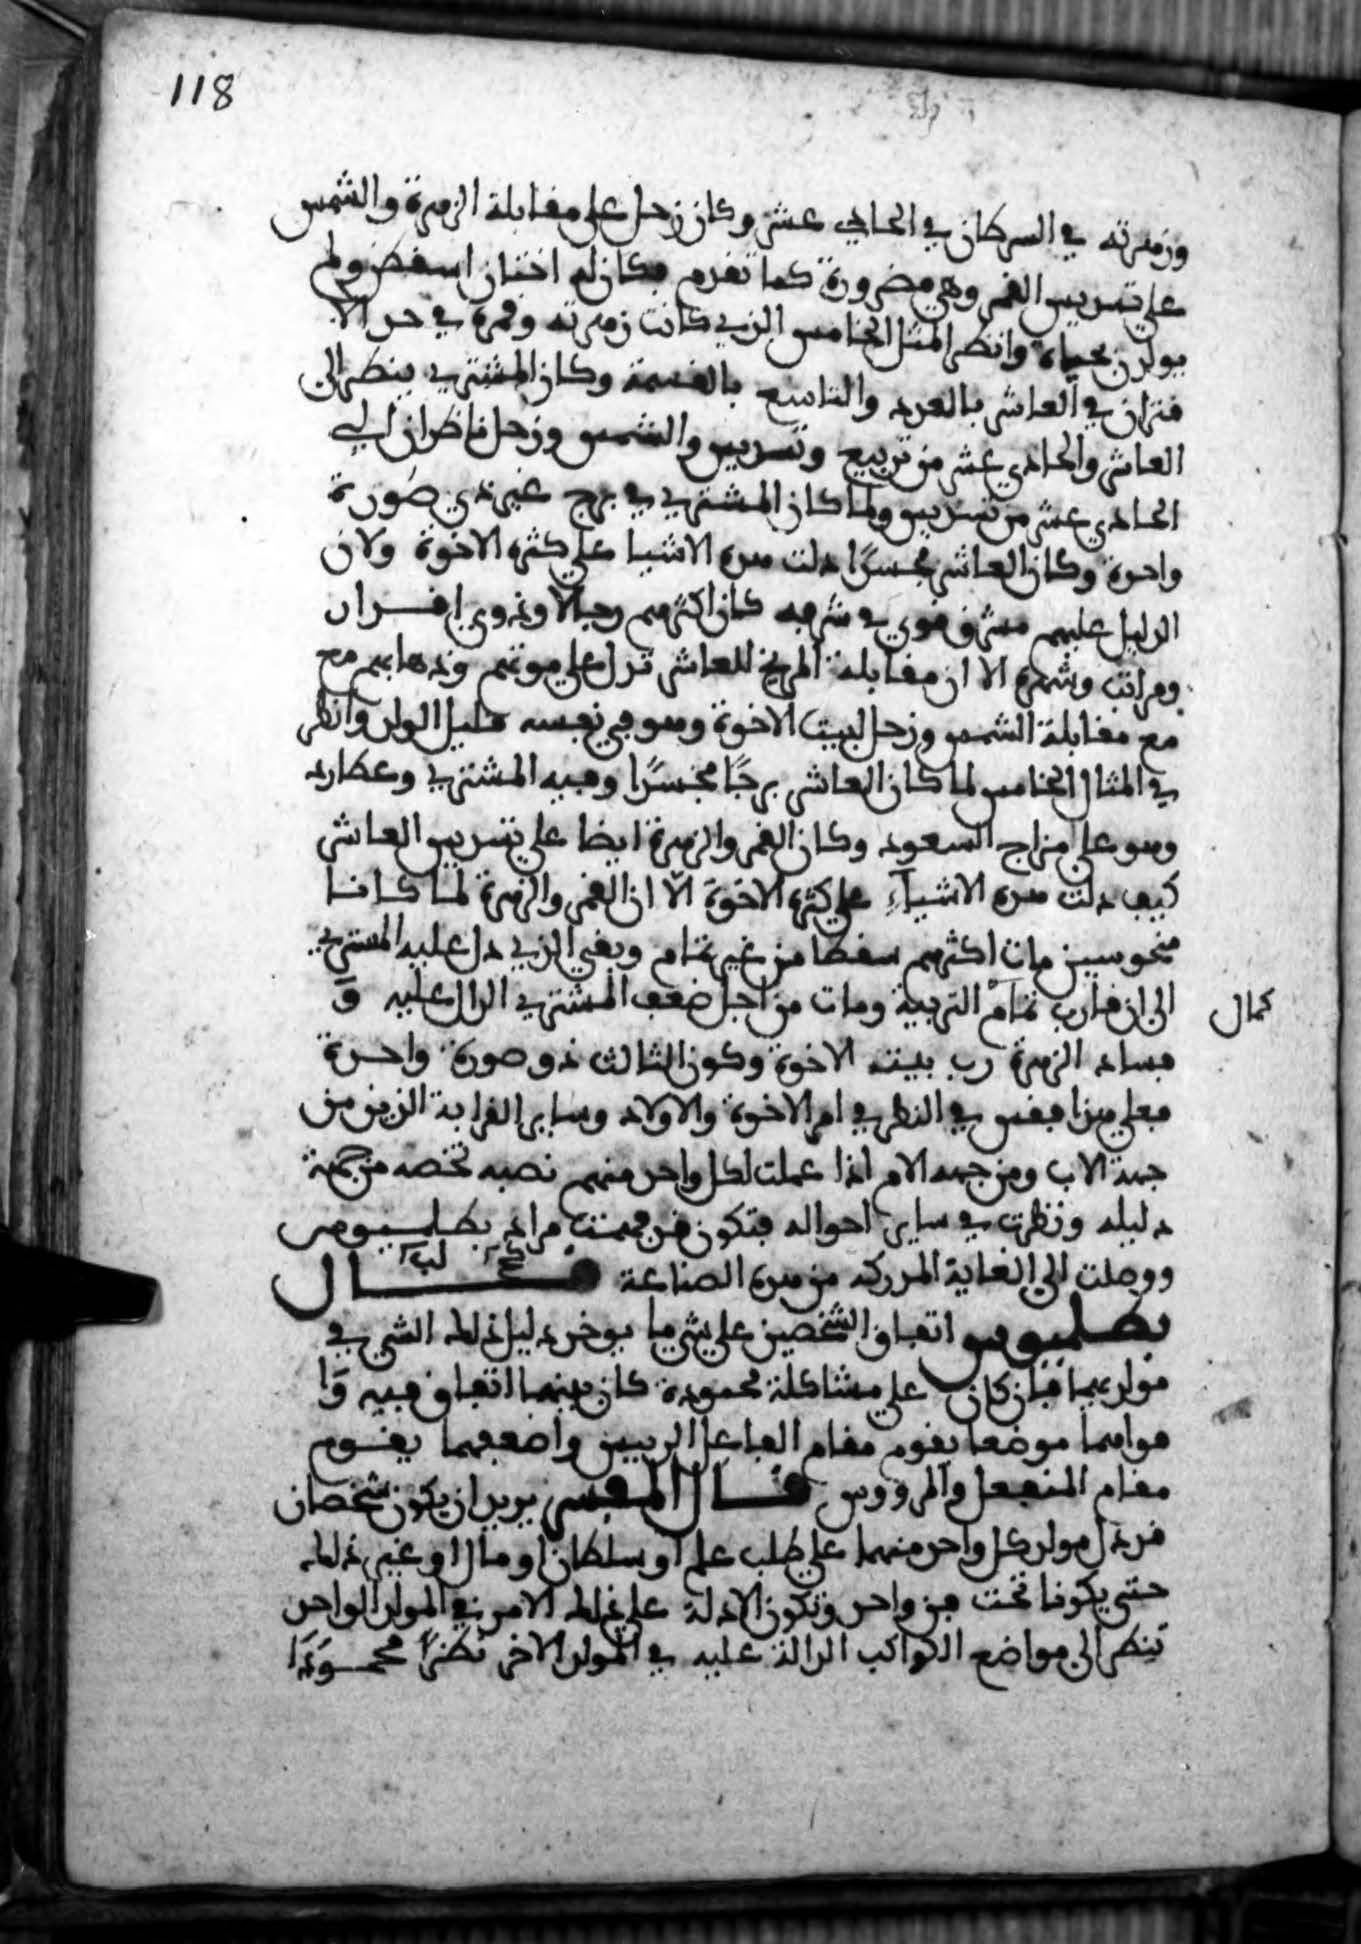 118
وزهرته في السرطان في الحادي عشر وكان زحل على مقابلة الزهرة والشمس
على تسديس القمر وهي مضرورة كما تقدم فكان له اختان اسقطن ولم
يولدن بحياة وانظر المثل الخامس الذي كانت زهرته وقمره في حد الا
قتران في العاشر بالعدد والتاسع بالقسمة وكان المشتري ينظر الى
العاشر والحادي عشر من تربيع وتسديس والشمس وزحل ناظران الى
الحادي عشر من تسديس ولما كان المشتري في برج غير ذي صورة
واحدة وكان العاشر مجسدًا دلت هذه الاشيا على كثره الاخوة ولان
الدليل عليهم مشرق قوي في شرفه كان اكثرهم رجالا وذوي اقدار
ومراتب وشهرة الا ان مقابلة المريخ للعاشر تدل على موتهم وذهابهم مع
مع مقابلة الشمس وزحل لبيت الاخوة وهو في نفسه قليل الولد وانظر
في المثال الخامس لما كان العاشر برجًا مجسدًا وفيه المشتري وعطارد
وهو على مزاج السعود وكان القمر والزهرة ايضا على تسديس العاشر
كيف دلت هذه الاشياء على كثرة الاخوة الا ان القمر والزهرة لما كانا
منحوسين مات اكثرهم سقطا من غير تمام وبقي الذي دل عليه المشتري
الى ان قارب تمام التربية ومات من اجل ضعف المشتري الدال عليه وَ
كمال
فساد الزهرة رب بيت الاخوة وكون الثالث ذو صورة واحدة
فعلى هذا فقس في النظر في امر الاخوة والاولاد وساير القرابة الذين من
جهة الاب ومن جهه الام اذا عملت لكل واحد منهم نصبه تخصه من جهة
دليله ونظرت في ساير احواله فتكون قد فهمت مراد بطلميوس
ووصلت الى الغاية المدركه من هذه الصناعة قــال
بطلميوس اتفاق الشخصين على شي ما يوخذ دليل ذلك الشي في
مولديهما فان كان على مشاكلة محمودة كان بينهما اتفاق فيه وَا
قواهما موضعا يقوم مقام الفاعل الرييس واضعفهما يقوم
مقام المنفعل والمرووس قــال المفسر يريد ان يكون شخصان
قد دل مولد كل واحد منهما على طلب علم او سلطان او مال او غير ذلك
حتى يكونا تحت فن واحد وتكون الادلة على ذلك الامر في المولد الواحد
تنظر الى مواضع الكواكب الدالة عليه في المولد الاخر نظرًا محمودًا